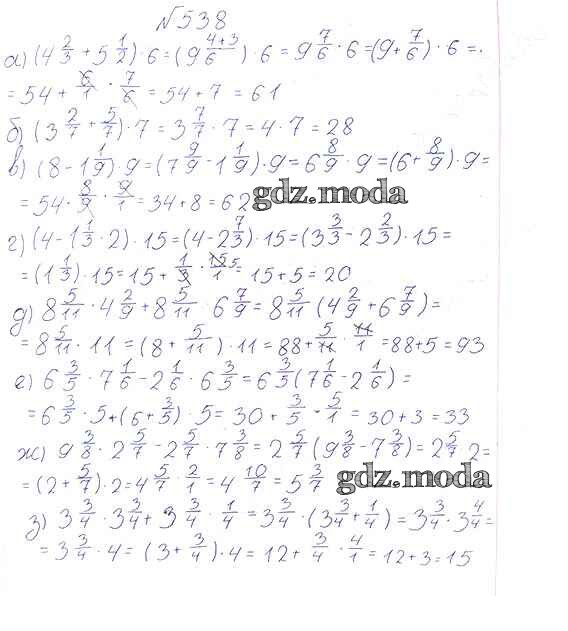 №538
а) (4 2/3 + 5 1/2) · 6 = (9 4+3/6) · 6 = 9 7/6 · 6 = (9 + 7/6) · 6 =
= 54 + 6/1 · 7/6 = 54 + 7 = 61
б) (3 2/7 + 5/7) · 7 = 3 7/7 · 7 = 4 · 7 = 28
в) (8 - 1 1/9) · 9 = (7 9/9 - 1 1/9) · 9 = 6 8/9 · 9 = (6 + 8/9) · 9 =
= 54 · 8/9 · 9/1 = 34 + 8 = 62
gdz.moda
г) (4 - 1 1/3 · 2) · 15 = (4 - 2 7/3) · 15 = (3 3/3 - 2 2/3) · 15 =
= (1 1/3) · 15 = 15 + 1/3 · 15/1 5 = 15 + 5 = 20
д) 8 5/11 · 4 2/9 + 8 5/11 · 6 7/9 = 8 5/11 (4 2/9 + 6 7/9) =
= 8 5/11 · 11 = (8 + 5/11) · 11 = 88 + 5/11 · 11/1 = 88 + 5 = 93
е) 6 3/5 · 7 1/6 - 2 1/6 · 6 3/5 = 6 3/5 (7 1/6 - 2 1/6) =
= 6 3/5 · 5 + (6 + 3/5) · 5 = 30 + 3/5 · 5/1 = 30 + 3 = 33
ж) 9 3/8 · 2 5/7 - 2 5/7 · 7 3/8 = 2 5/7 (9 3/8 - 7 3/8) = 2 5/7 · 2 =
= (2 + 5/7) · 2 = 4 5/7 · 2/1 = 4 10/7 = 5 3/7
gdz.moda
з) 3 3/4 · 3 3/4 + 3 3/4 · 1/4 = 3 3/4 · (3 3/4 + 1/4) = 3 3/4 · 3 4/4 =
= 3 3/4 · 4 = (3 + 3/4) · 4 = 12 + 3/4 · 4/1 = 12 + 3 = 15